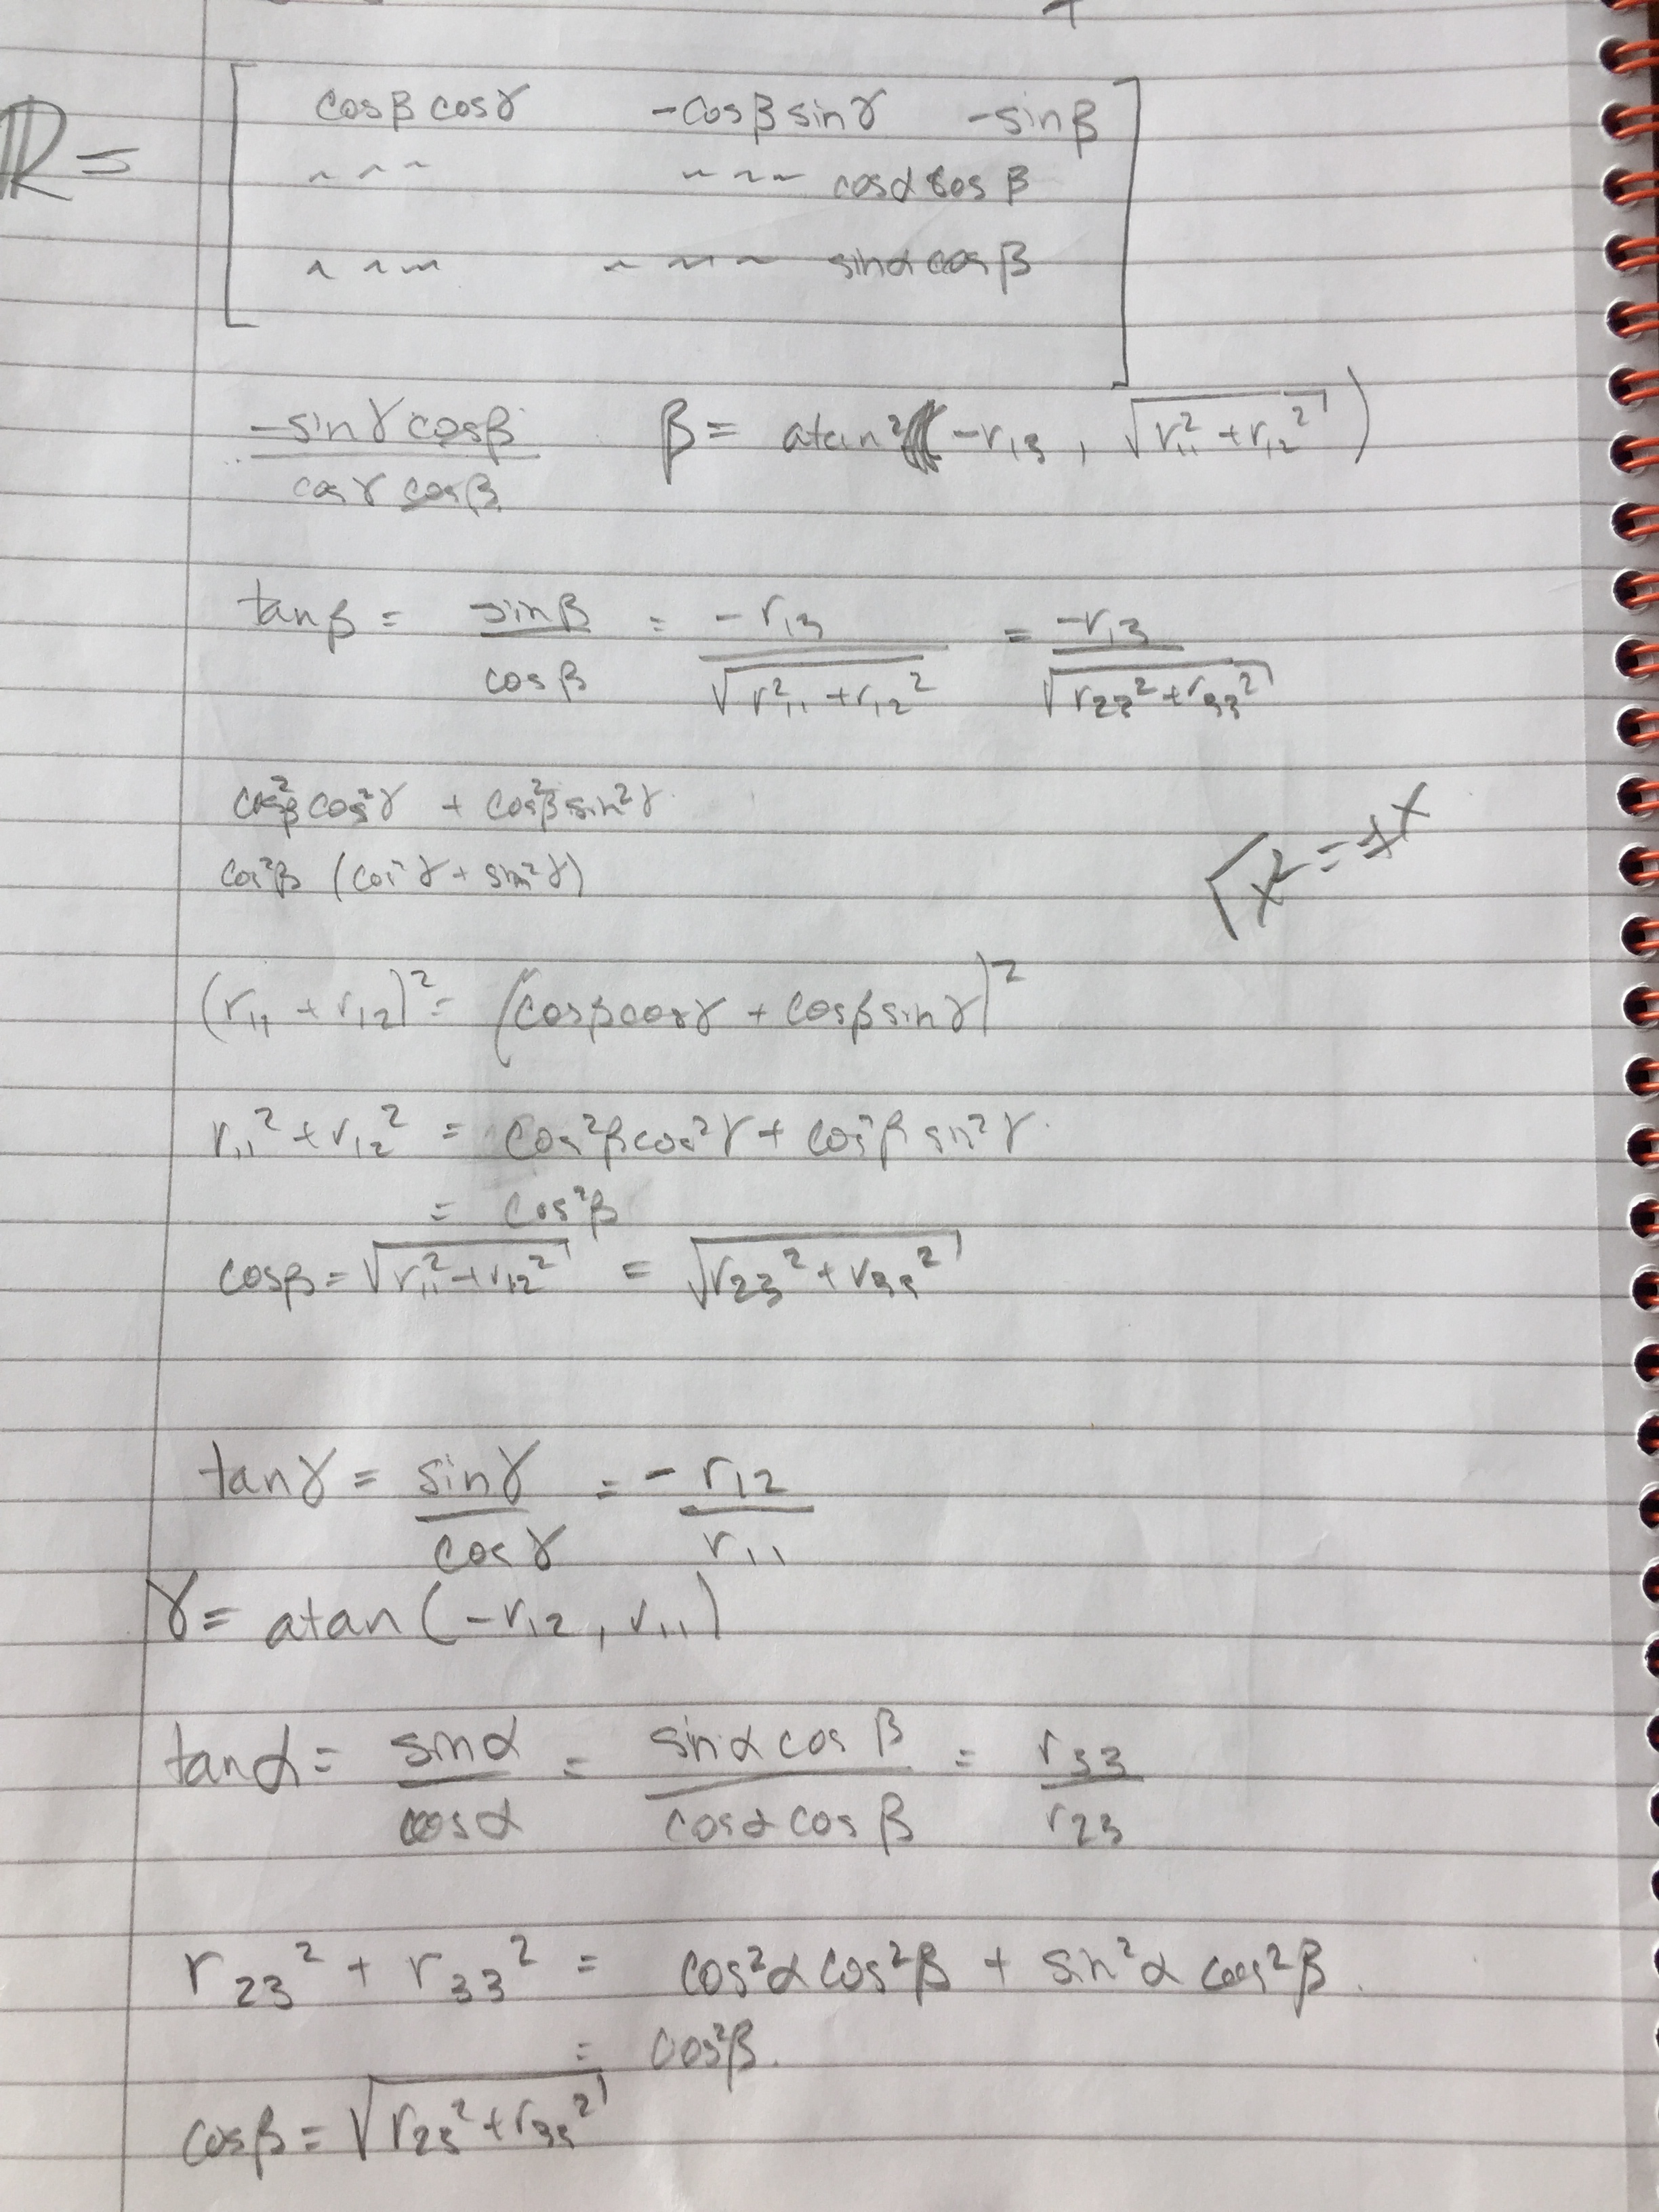 R = [ cosβ cosγ   -cosβ sinγ   -sinβ
~ ~ ~   ~ ~ ~   cosα cosβ
~ ~ ~   ~ ~ ~ ~   sinα cosβ ]
-sinγ cosβ / cosγ cosβ   β = atan2( -r₁₃ , √(r₁₁² + r₁₂²) )
tanβ = sinβ / cosβ = -r₁₃ / √(r₁₁² + r₁₂²) = -r₁₃ / √(r₂₃² + r₃₃²)
cos²β cos²γ + cos²β sin²γ
cos²β (cos²γ + sin²γ)
√x² = ±x
(r₁₁ + r₁₂)² = (cosβ cosγ + cosβ sinγ)²
r₁₁² + r₁₂² = cos²β cos²γ + cos²β sin²γ
= cos²β
cosβ = √(r₁₁² + r₁₂²) = √(r₂₃² + r₃₃²)
tanγ = sinγ / cosγ = - r₁₂ / r₁₁
γ = atan(-r₁₂, r₁₁)
tanα = sinα / cosα = sinα cosβ / cosα cosβ = r₃₃ / r₂₃
r₂₃² + r₃₃² = cos²α cos²β + sin²α cos²β.
= cos²β.
cosβ = √(r₂₃² + r₃₃²)